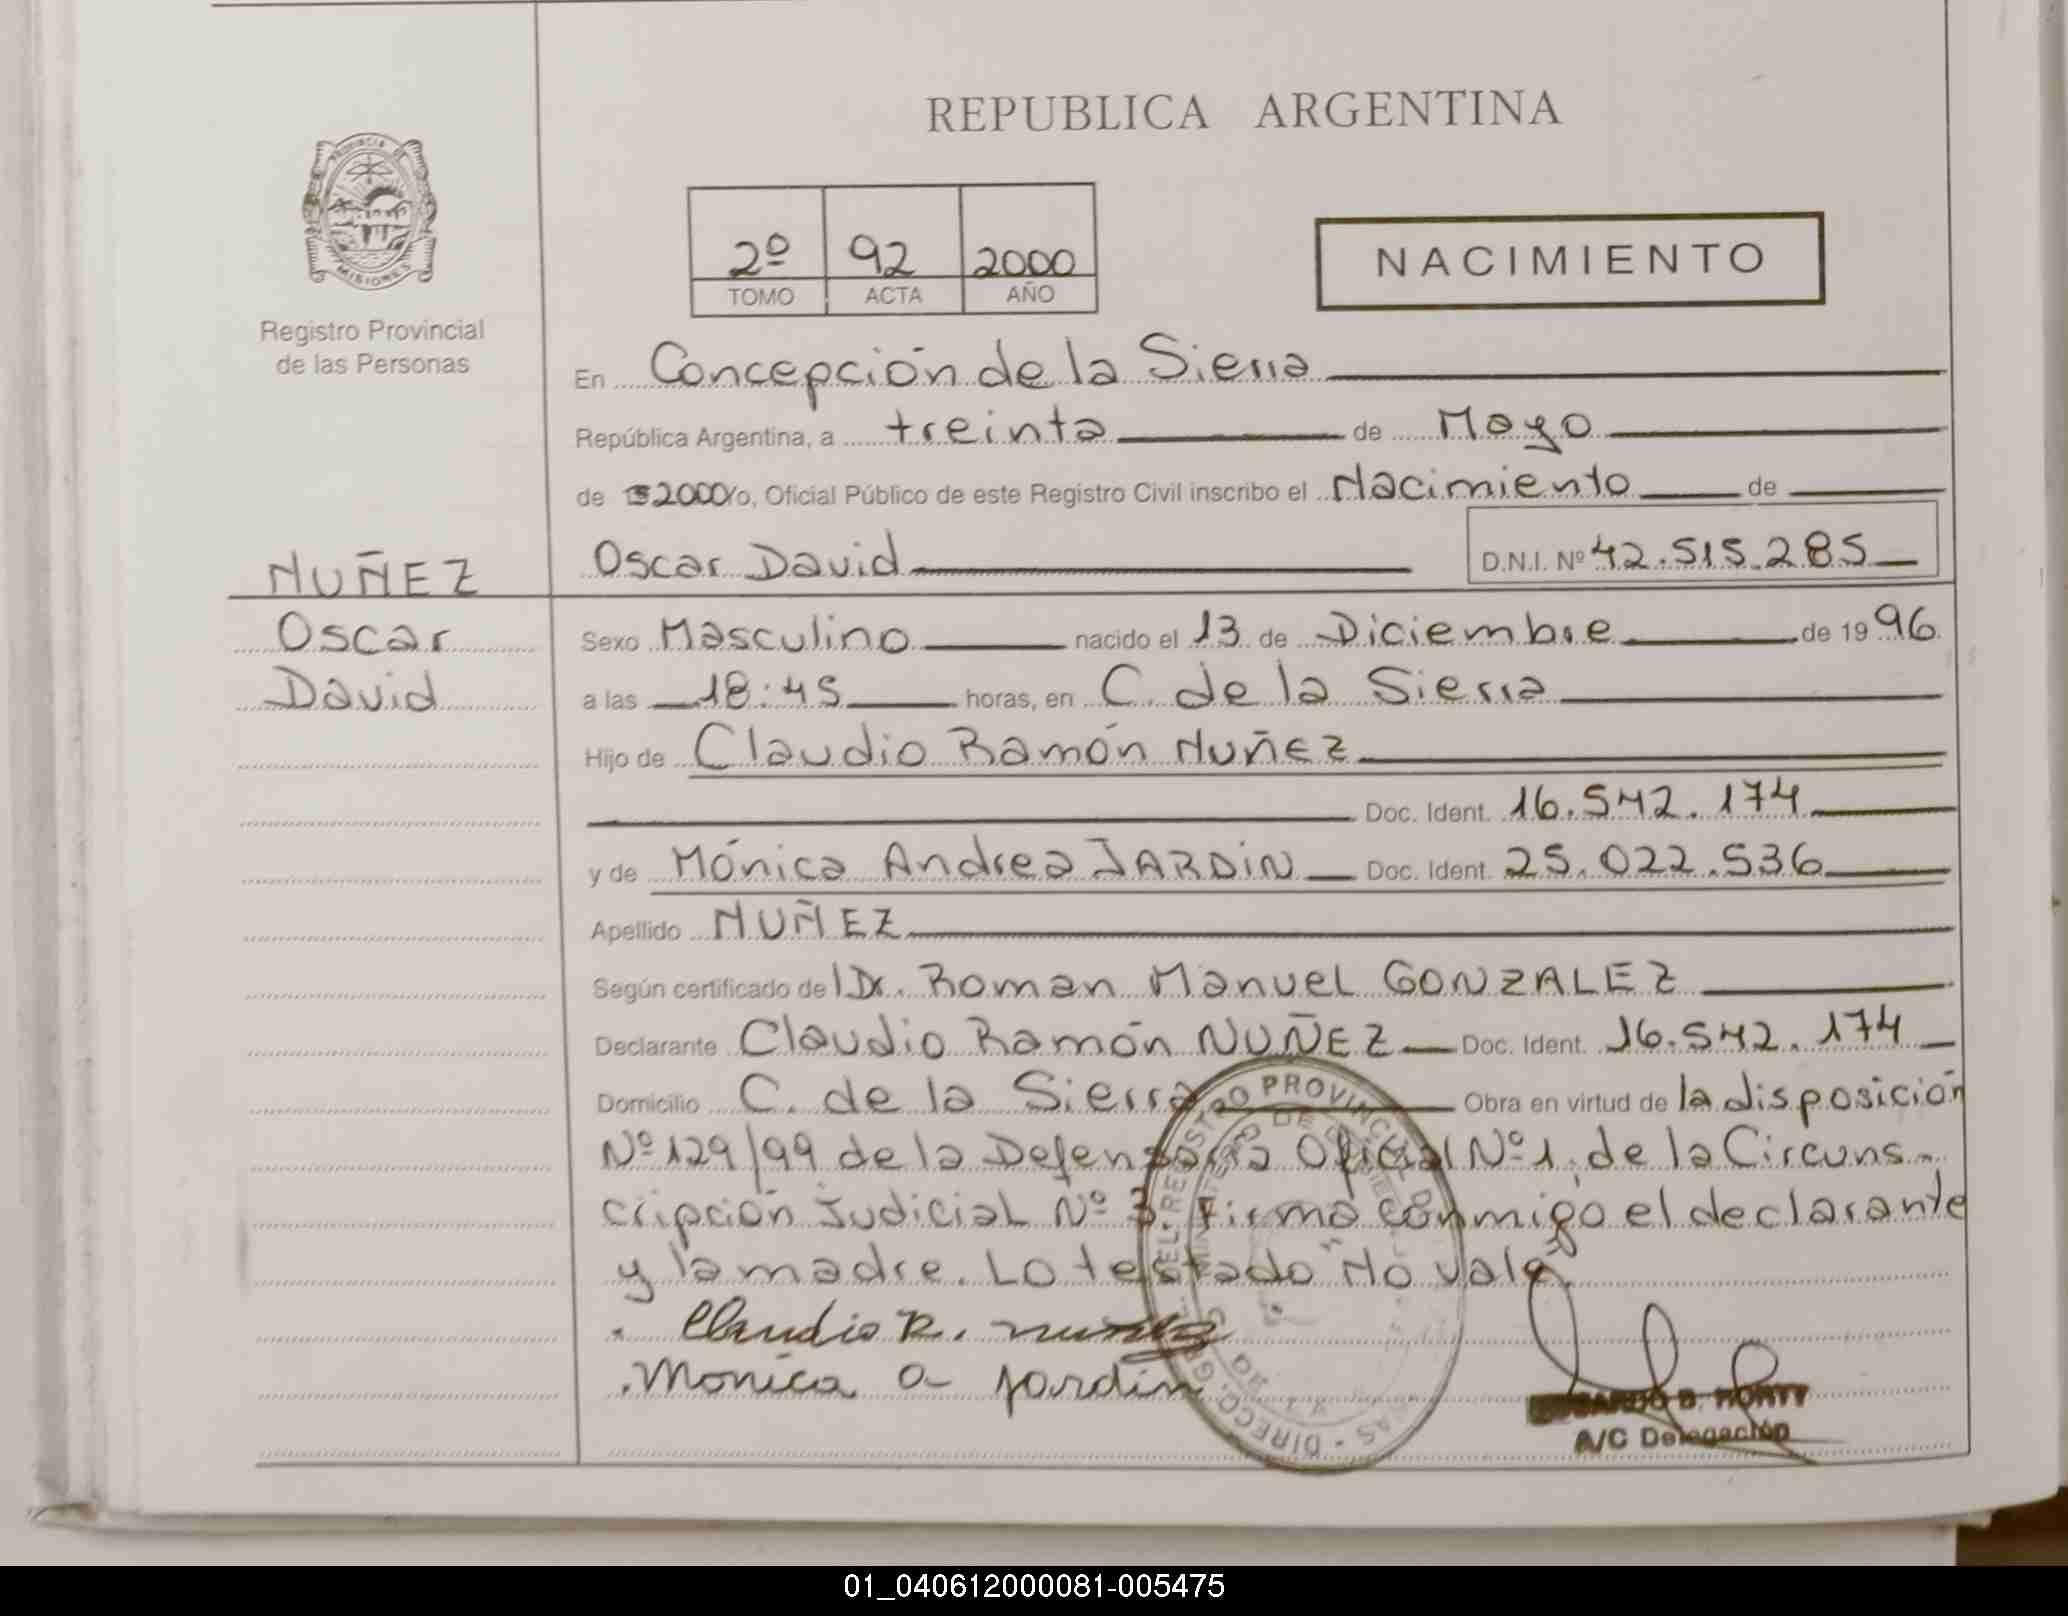 REPUBLICA ARGENTINA
PROVINCIA DE
MISIONES
Registro Provincial
de las Personas
2º 92 2000
TOMO ACTA AÑO
NACIMIENTO
En Concepción de la Sierra
República Argentina, a treinta de Mayo
de 2000 yo, Oficial Público de este Registro Civil inscribo el Nacimiento de
Oscar David D.N.I. Nº 42.515.285
NUÑEZ
Oscar
David
Sexo Masculino nacido el 13 de Diciembre de 1996
a las 18:45 horas, en C. de la Sierra
Hijo de Claudio Ramón Nuñez
Doc. Ident. 16.542.174
y de Mónica Andrea JARDIN Doc. Ident. 25.022.536
Apellido NUÑEZ
Según certificado del Dr. Roman Manuel GONZALEZ
Declarante Claudio Ramón NUÑEZ Doc. Ident. 16.542.174
Domicilio C. de la Sierra Obra en virtud de la disposición
Nº 129/99 de la Defensoría Oficial Nº 1, de la Circuns-
cripción Judicial Nº 3. Firma conmigo el declarante
y la madre. Lo testado "No vale".
Claudio R. nuñez
Monica a jardin
B.
A/C Delegación
01_040612000081-005475